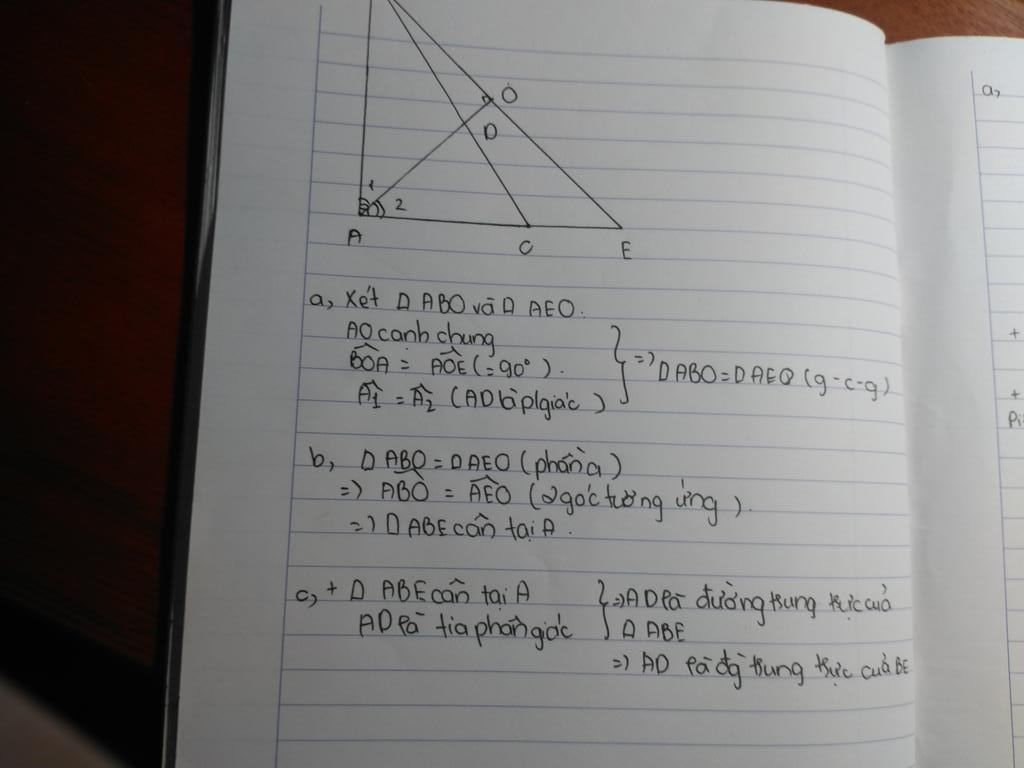 O
D
1
2
A
C
E
a, Xét Δ ABO và Δ AEO.
AO cạnh chung
BÔA = AÔE (= 90°).
Â1 = Â2 (AD là p/giác)
} => Δ ABO = Δ AEO (g-c-g)
b, Δ ABO = Δ AEO (phần a)
=> ABO = AEO (2 góc tương ứng).
=> Δ ABE cân tại A.
c, + Δ ABE cân tại A
AD là tia phân giác
} => AD là đường trung trực của
Δ ABE
=> AD là đg trung trực của BE
a,
+
+